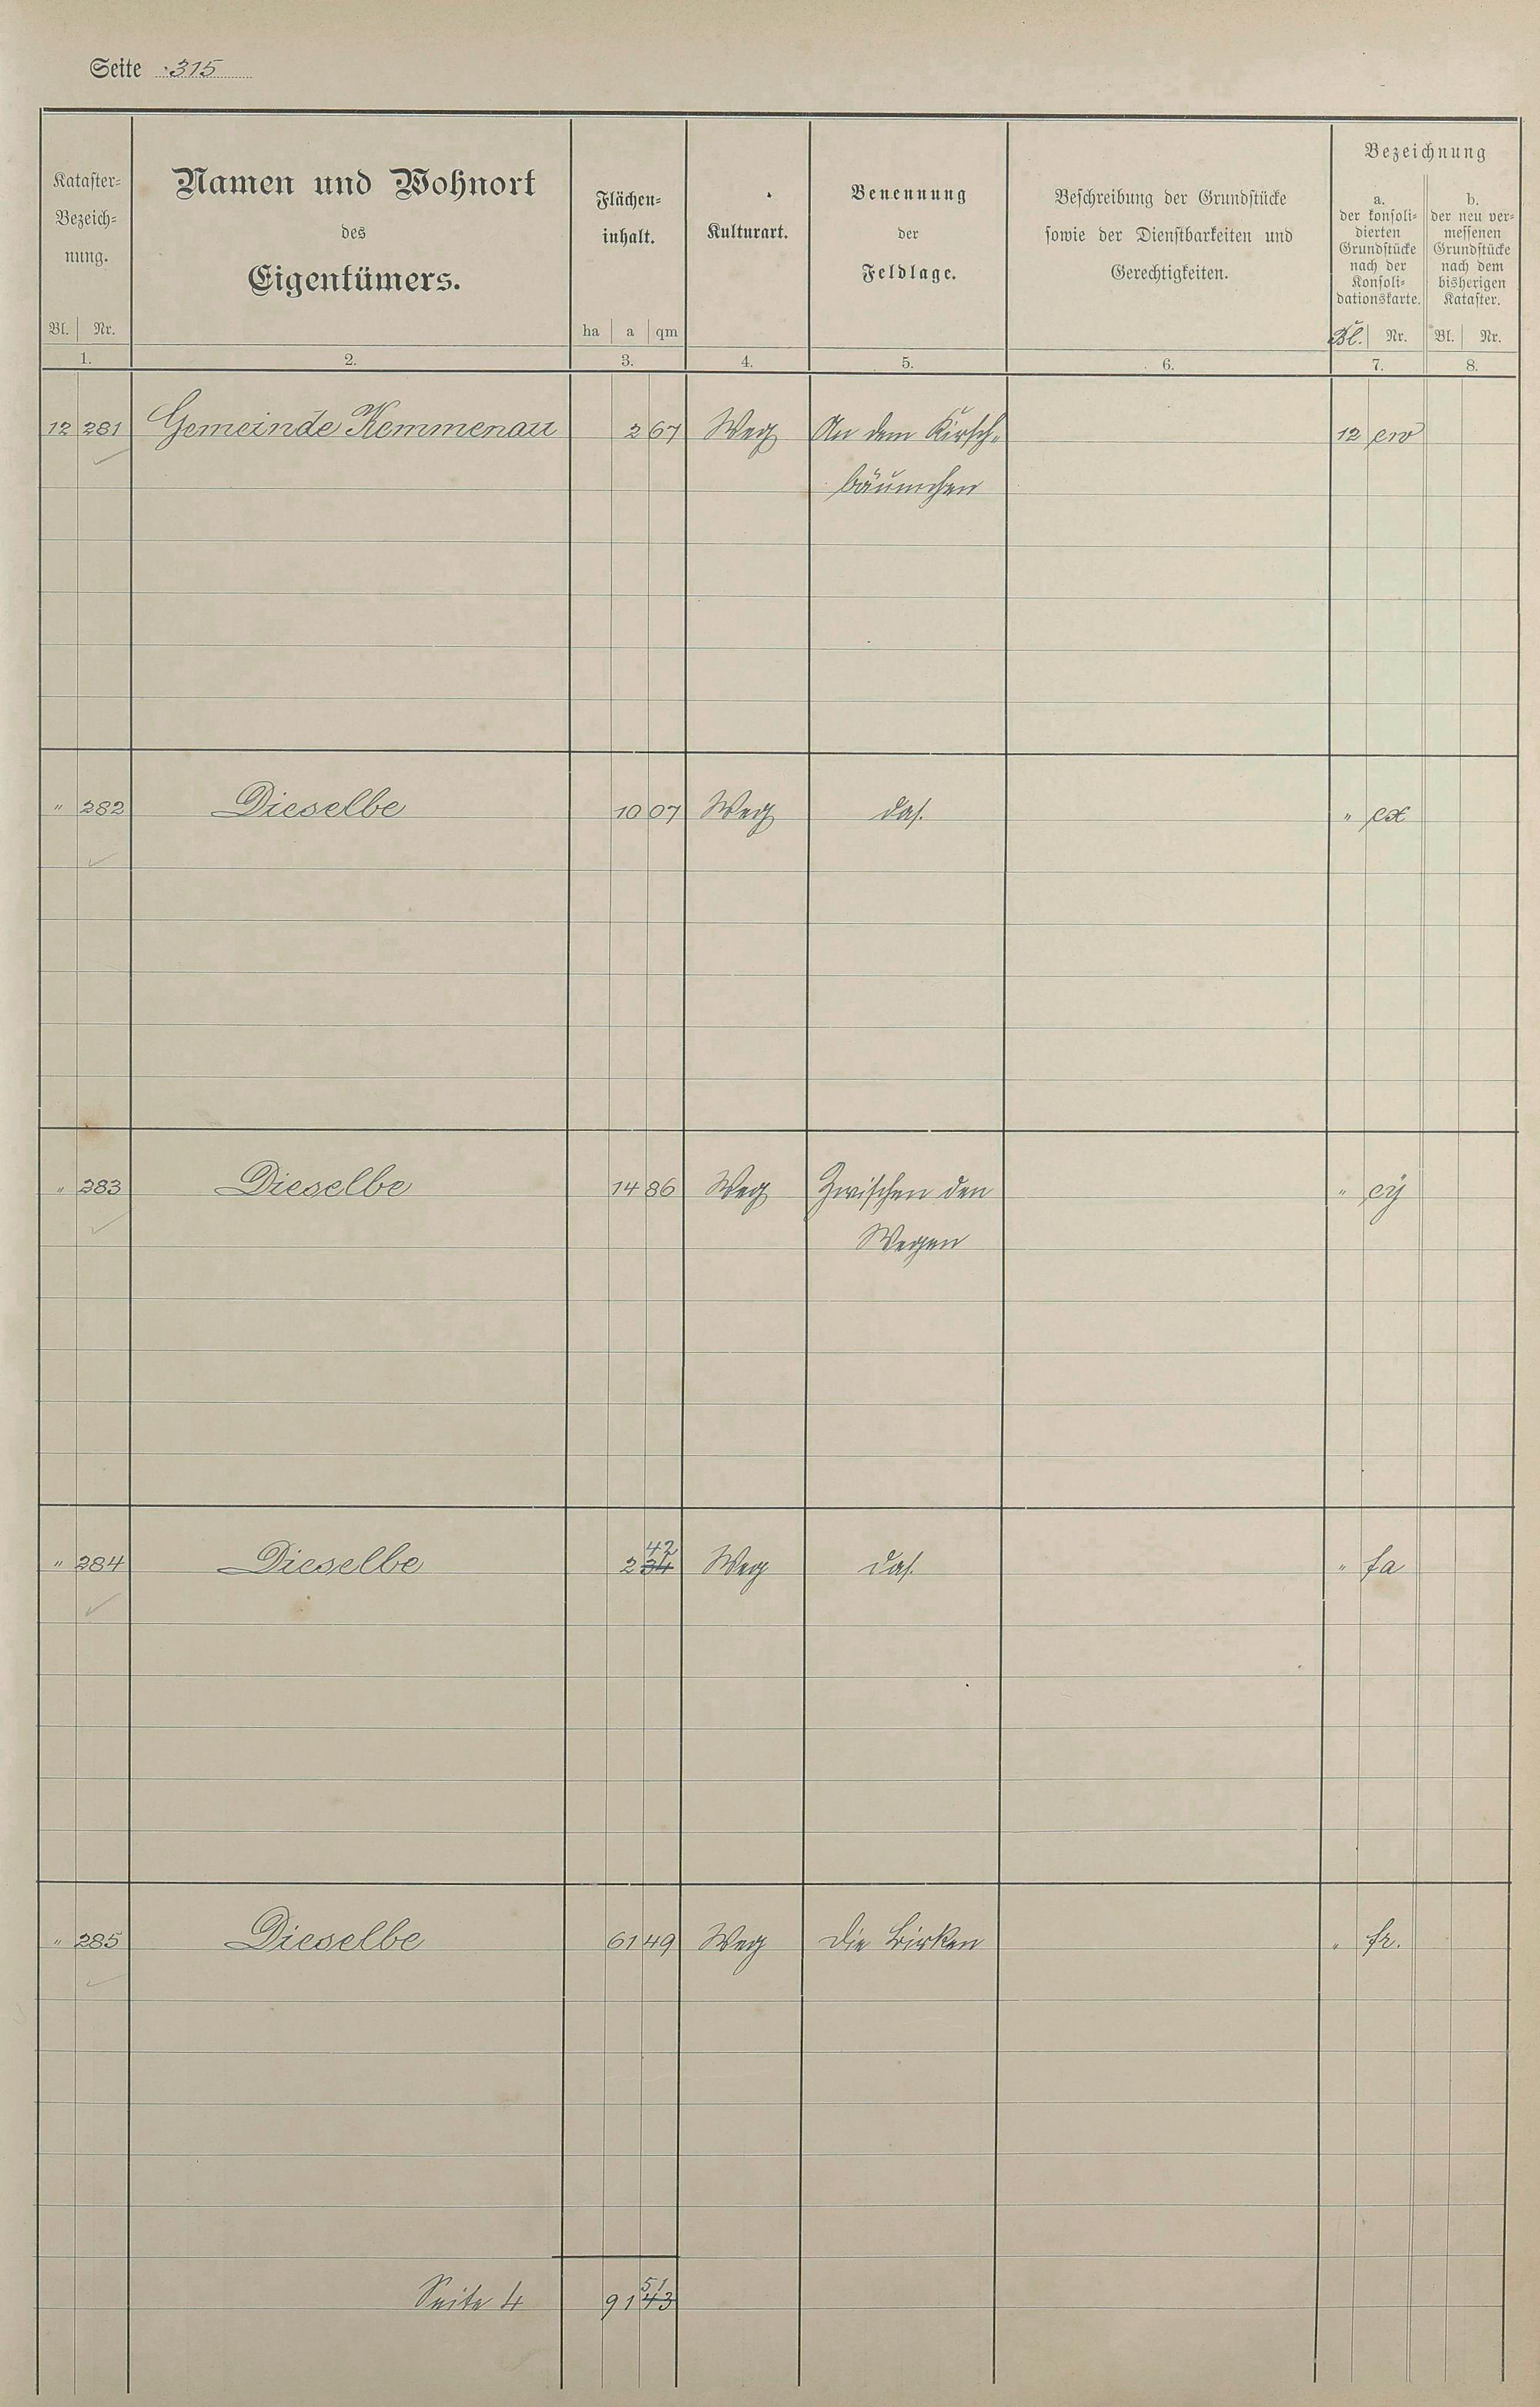 Seite 315
Kataster-
Bezeich-
nung.
Bl. Nr.
1.
Namen und Wohnort
des
Eigentümers.
2.
Flächen-
inhalt.
ha a qm
3.
Kulturart.
4.
Benennung
der
Feldlage.
5.
Beschreibung der Grundstücke
sowie der Dienstbarkeiten und
Gerechtigkeiten.
6.
Bezeichnung
a.
der konsoli-
dierten
Grundstücke
nach der
Konsoli-
dationskarte.
Bl. Nr.
7.
b.
der neu ver-
messenen
Grundstücke
nach dem
bisherigen
Kataster.
Bl. Nr.
8.
12 281 Gemeinde Kemmenau 2 67 Weg An dem Kirsch- 12 ew
bäumchen
" 282 Dieselbe 10 07 Weg das. " ex
" 283 Dieselbe 14 86 Weg Zwischen den " ey
Wegen
42
" 284 Dieselbe 2 34 Weg das. " fa
" 285 Dieselbe 61 49 Weg Die Birken " fr.
51
Seite 4 91 43